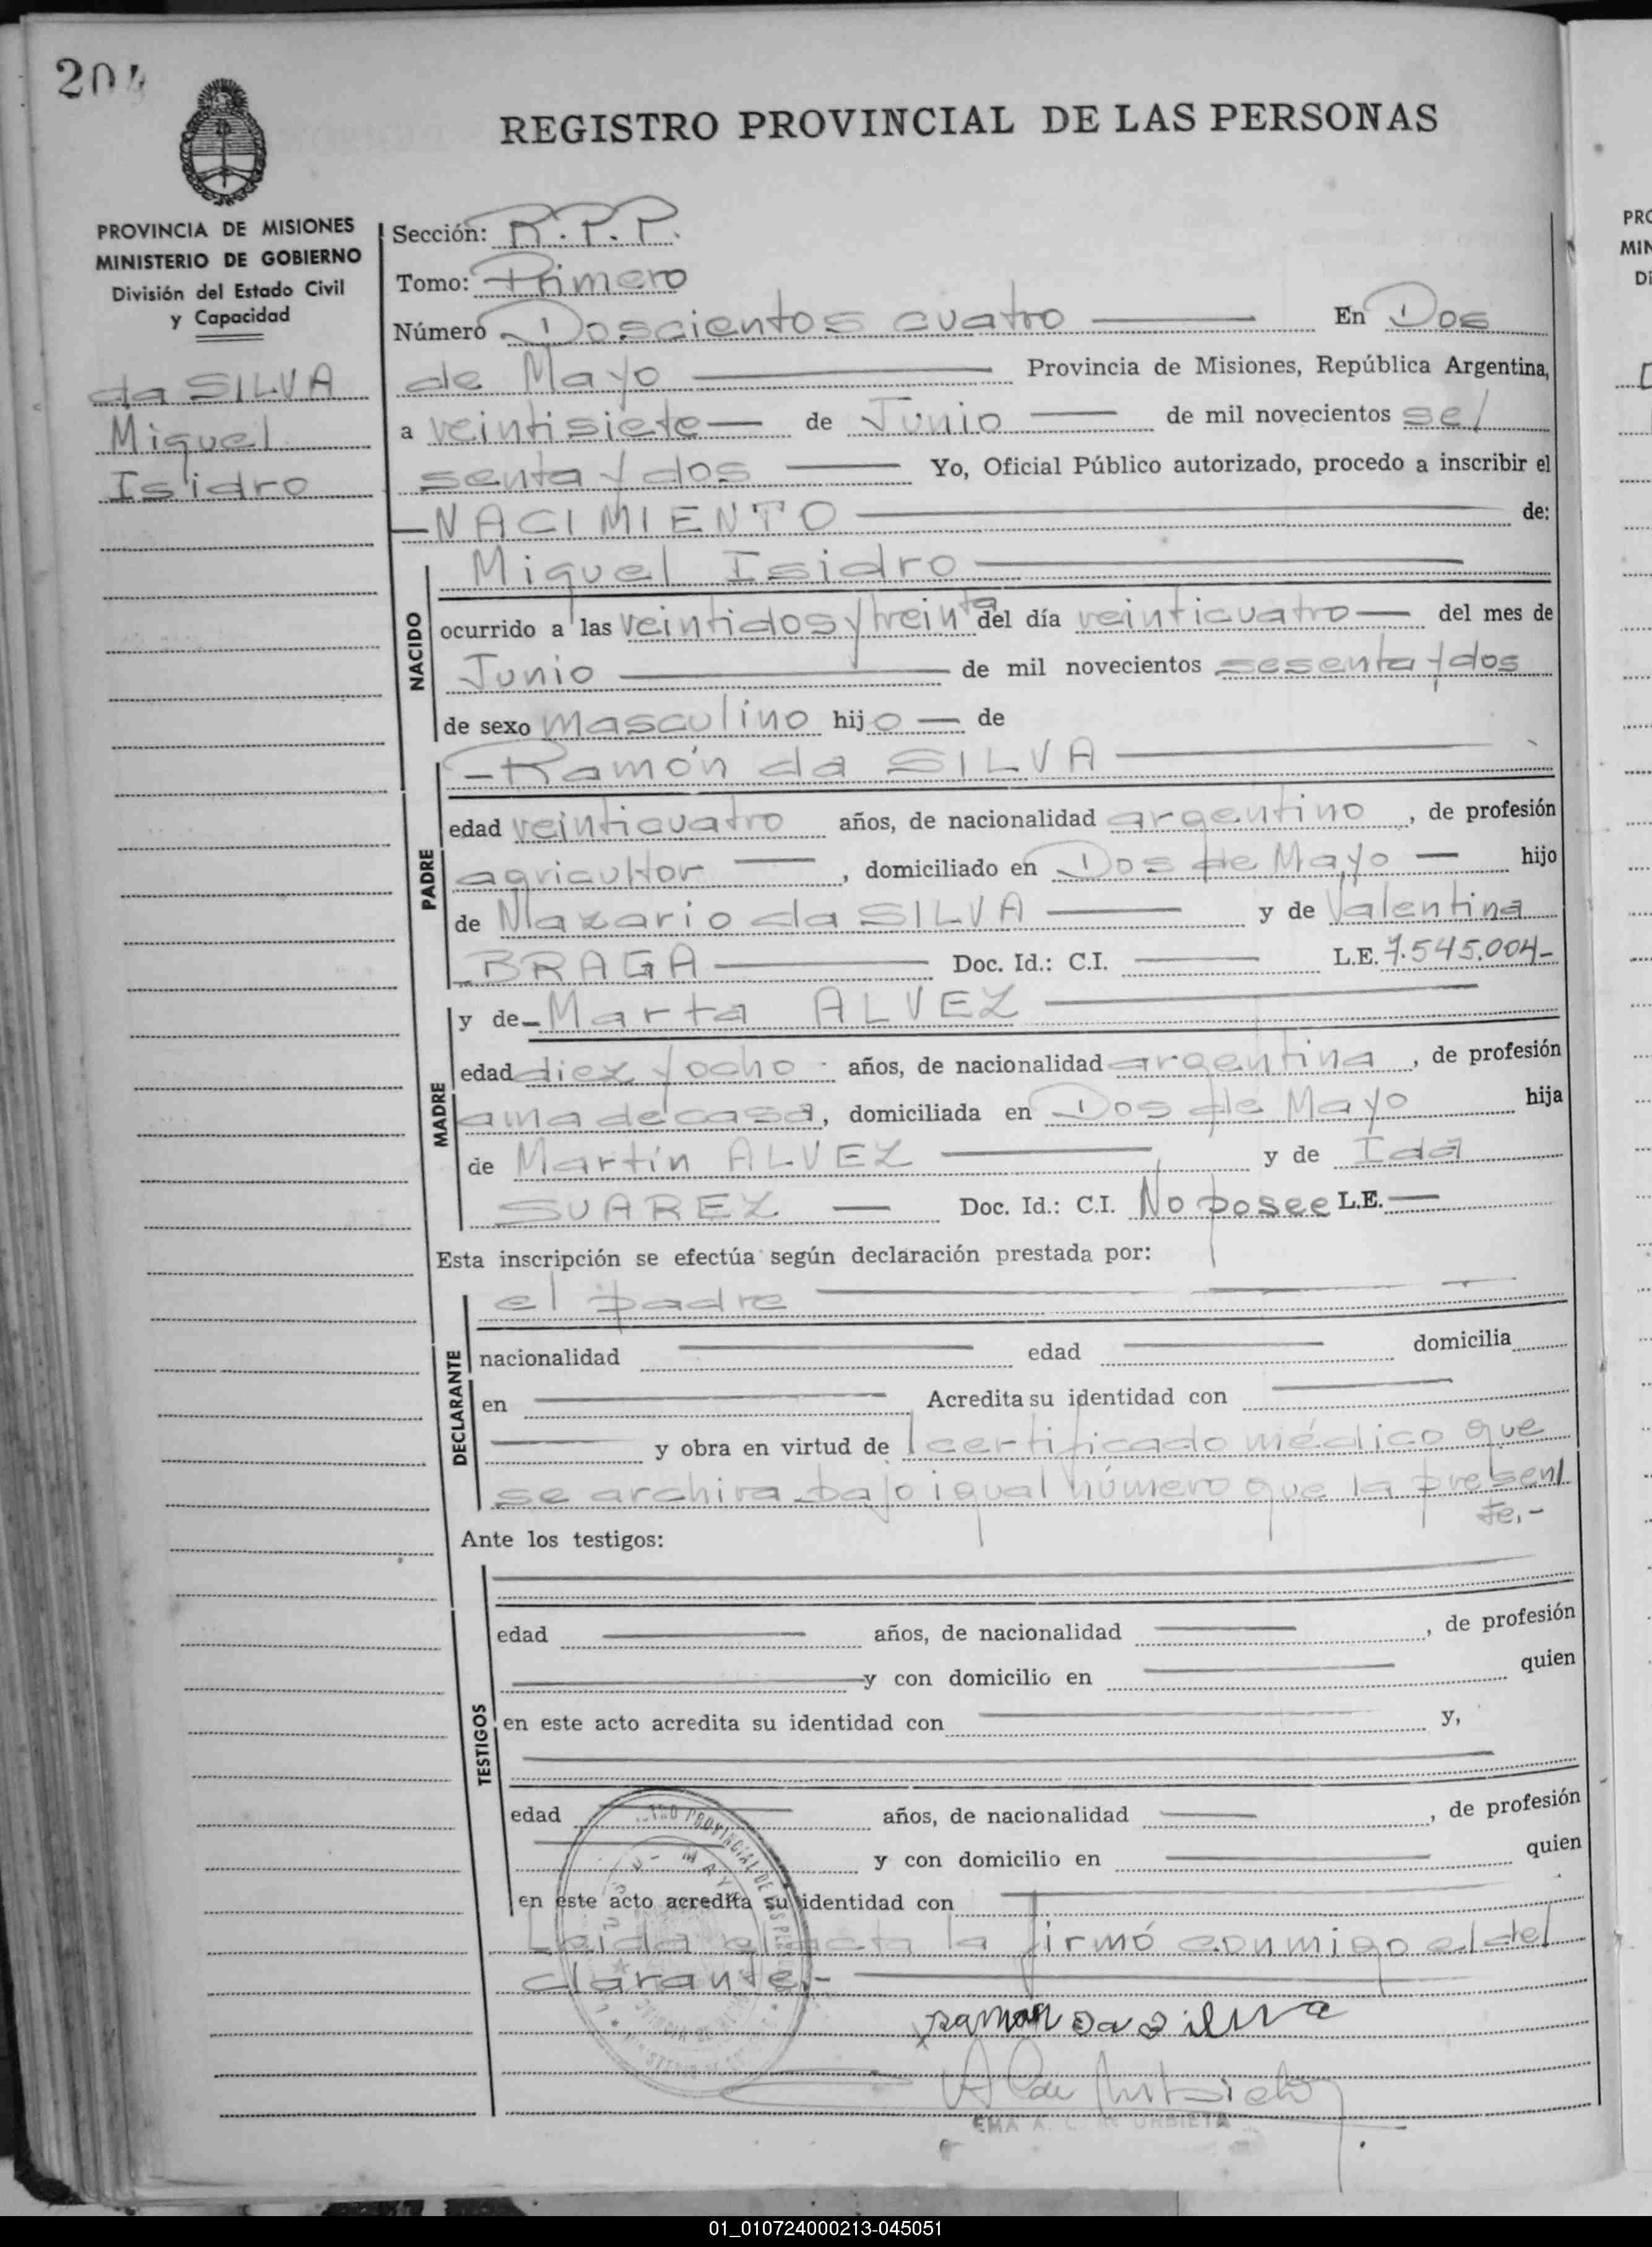 204
REGISTRO PROVINCIAL DE LAS PERSONAS
PROVINCIA DE MISIONES
MINISTERIO DE GOBIERNO
División del Estado Civil
y Capacidad
da SILVA
Miguel
Isidro
Sección: R.P.P.
Tomo: Primero
Número Doscientos cuatro En Dos
de Mayo Provincia de Misiones, República Argentina,
a veintisiete de Junio de mil novecientos se/
senta y dos Yo, Oficial Público autorizado, procedo a inscribir el
NACIMIENTO de:
NACIDO
Miguel Isidro
ocurrido a las veintidos y treinta del día veinticuatro del mes de
Junio de mil novecientos sesenta y dos
de sexo masculino hijo de
PADRE
Ramón da SILVA
edad veinticuatro años, de nacionalidad argentino, de profesión
agricultor, domiciliado en Dos de Mayo hijo
de Nazario da SILVA y de Valentina
BRAGA Doc. Id.: C.I. L.E. 7.545.004-
MADRE
y de Marta ALVEZ
edad diez y ocho años, de nacionalidad argentina, de profesión
ama de casa, domiciliada en Dos de Mayo hija
de Martín ALVEZ y de Ida
SUAREZ Doc. Id.: C.I. No posee L.E.
Esta inscripción se efectúa según declaración prestada por:
DECLARANTE
el padre
nacionalidad edad domicilia
en Acredita su identidad con
y obra en virtud de l certificado médico que
se archiva bajo igual número que la presen/
te.-
Ante los testigos:
TESTIGOS
edad años, de nacionalidad , de profesión
y con domicilio en quien
en este acto acredita su identidad con y,
edad años, de nacionalidad , de profesión
y con domicilio en quien
en este acto acredita su identidad con
Leida el acta la firmó conmigo el de/
clarante.-
ramon da silva
URBIETA
01_010724000213-045051